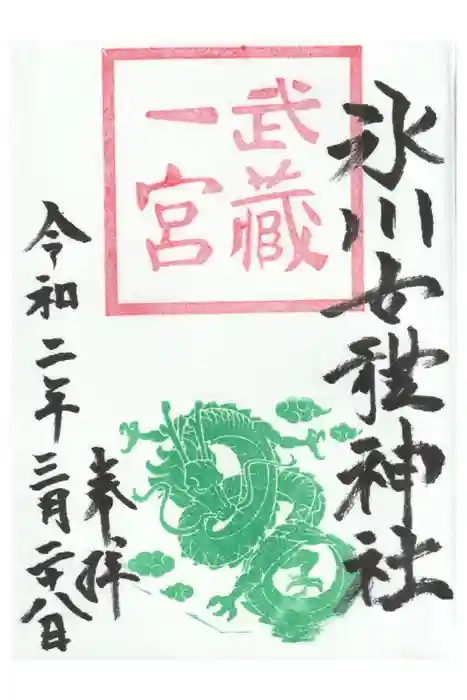 氷川女體神社
武藏
一宮
奉拝
令和二年三月二十八日